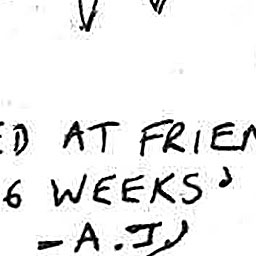 ED AT FRIEN
6 WEEKS'
- A.J,